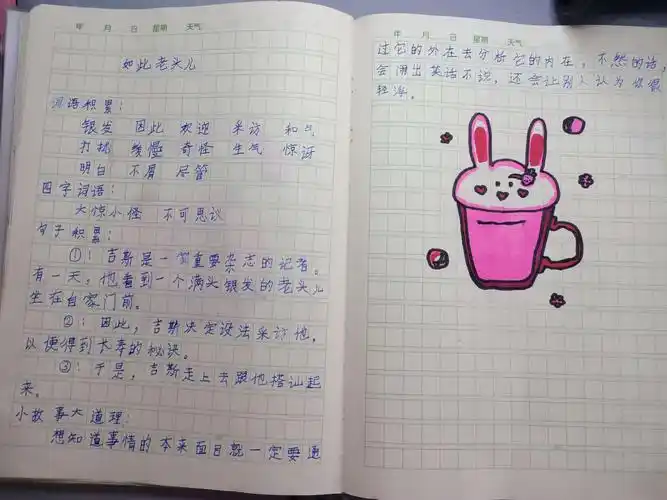 年 月 日 星期 天气
如此老头儿
词语积累：
银发 因此 欢迎 采访 和气
打扰 缓慢 奇怪 生气 惊讶
明白 不屑 尽管
四字词语：
大惊小怪 不可思议
句子积累：
①：吉斯是一家重要杂志的记者。
有一天，他看到一个满头银发的老头儿
坐在自家门前。
②：因此，吉斯决定设法采访他，
以便得到长寿的秘诀。
③：于是，吉斯走上去跟他搭讪起
来。
小故事大道理：
想知道事情的本来面目就一定要透
年 月 日 星期 天气
过它的外在去分析它的内在，不然的话，
会闹出笑话不说，还会让别人认为你很
轻浮。